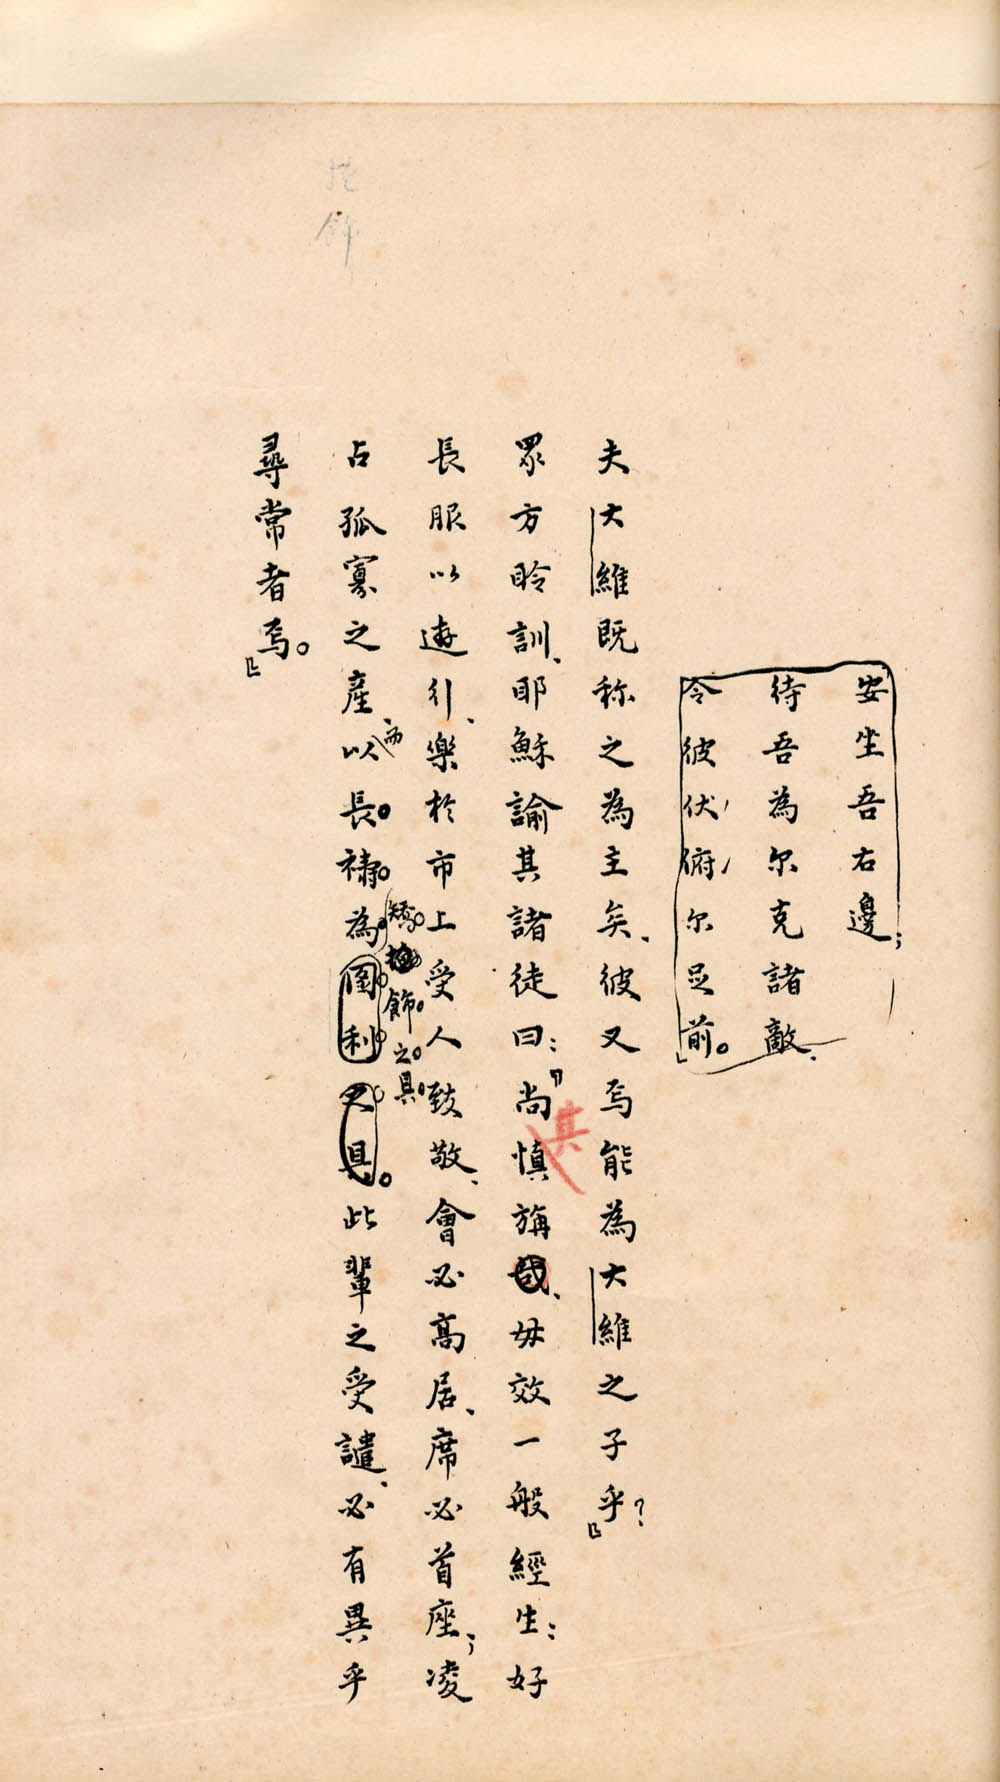 安坐吾右邊;
待吾為尔克諸敵、
令彼伏俯尔足前。」
夫大維既称之為主矣、彼又焉能為大維之子乎?」
眾方聆訓、耶穌諭其諸徒曰:「尚慎旃哉、毋效一般經生:好
其
長服以遊行、樂於市上受人致敬、會必高居、席必首座;凌
矯飾之具
而
占孤寡之產、以長禱為圖利之具。此輩之受譴、必有異乎
尋常者焉。」
飾